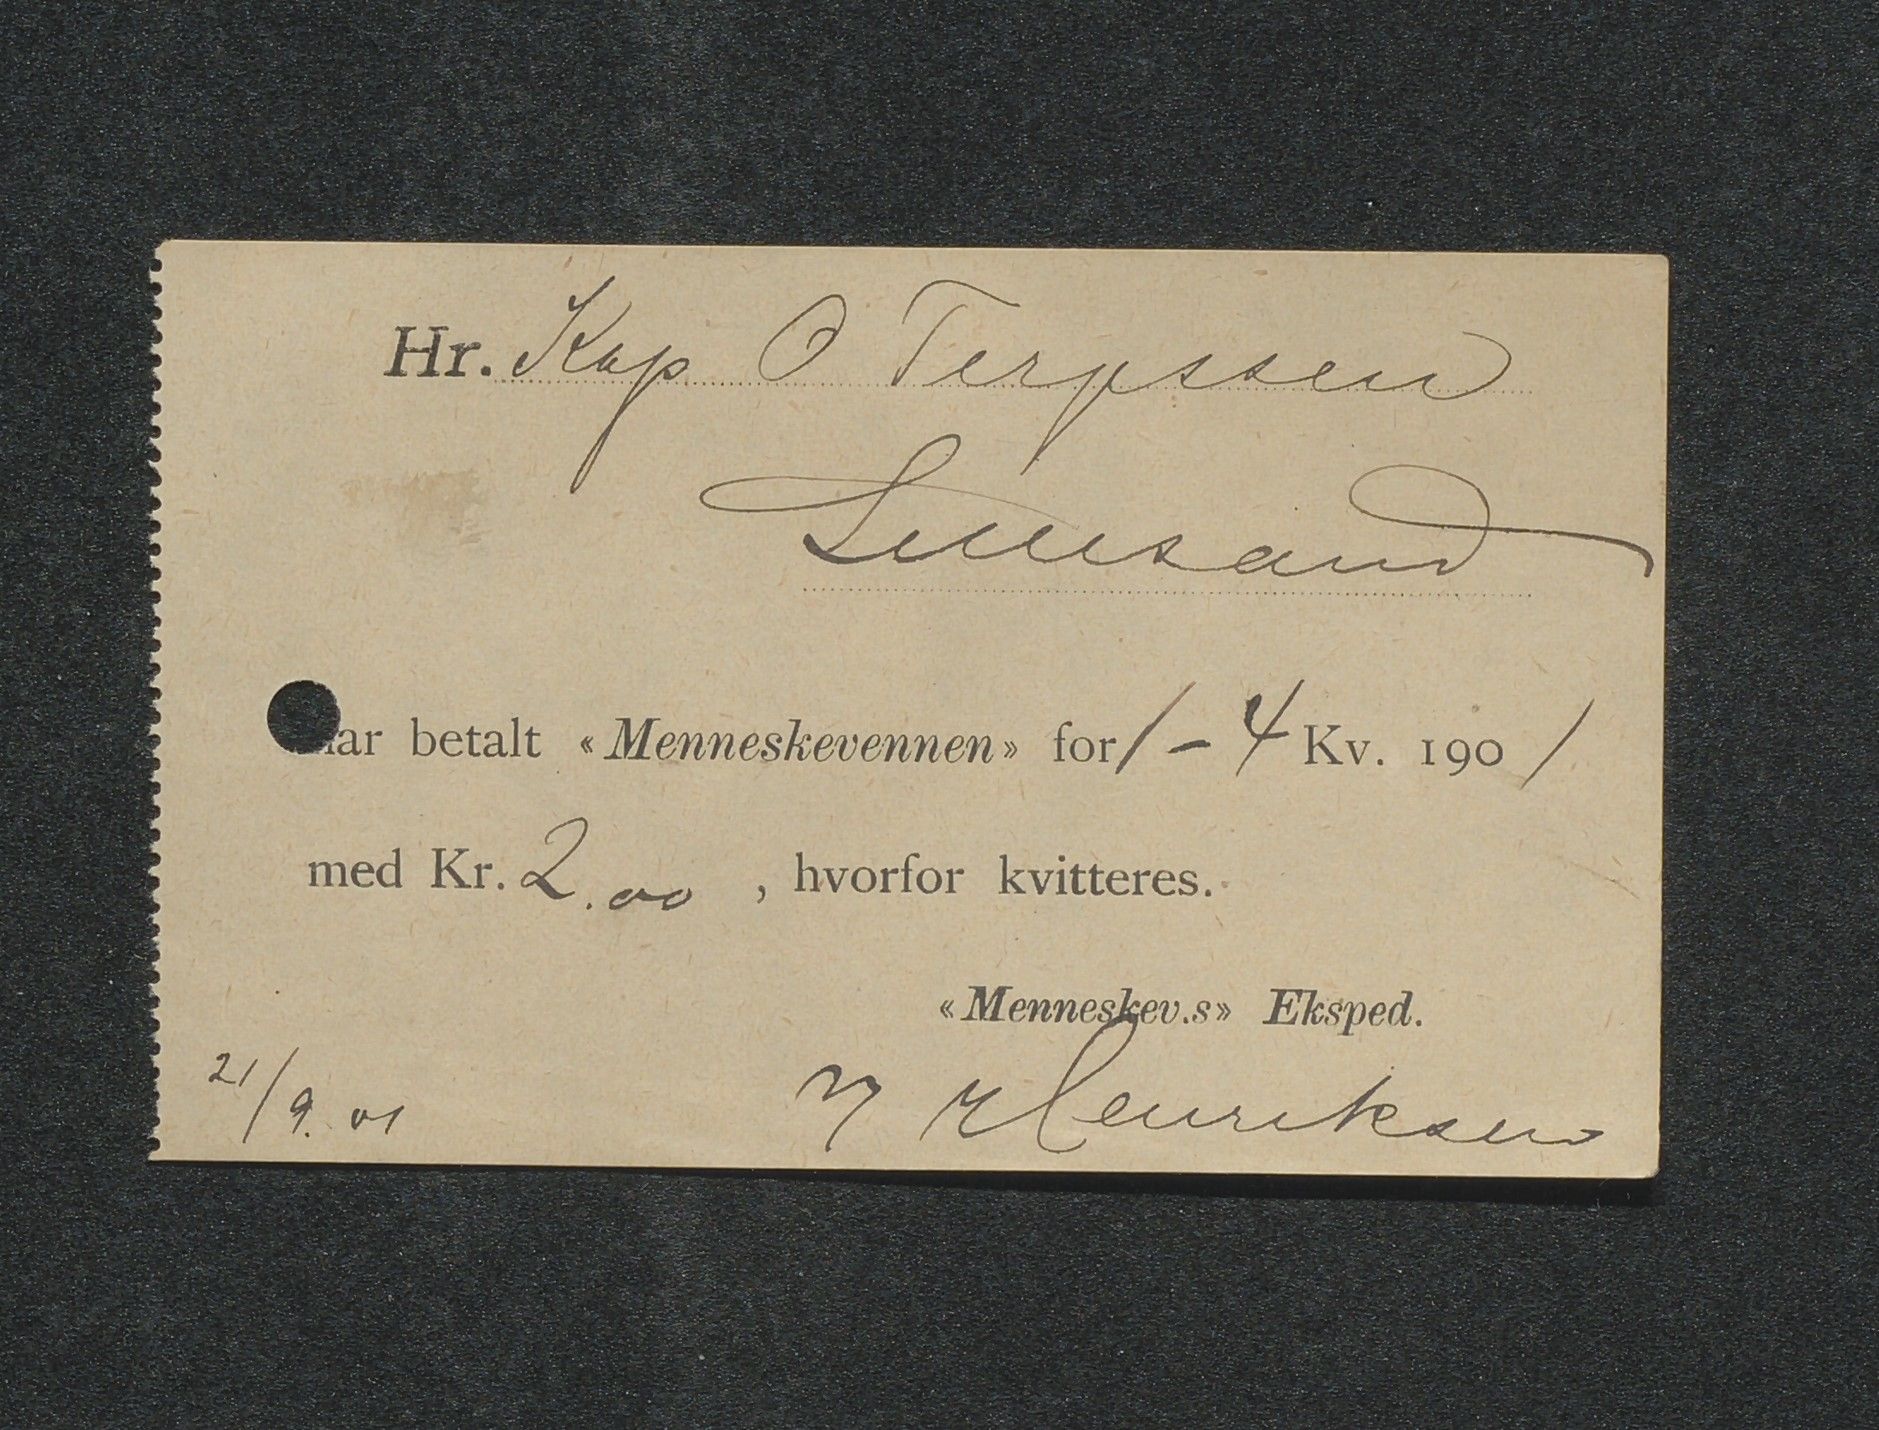 Hr. Kap O Terjessen
Lillesand
har betalt «Menneskevennen» for 1 – 4 Kv. 1901
med Kr. 2.00, hvorfor kvitteres.
«Menneskev.s» Eksped.
21/9. 01 Henriksen